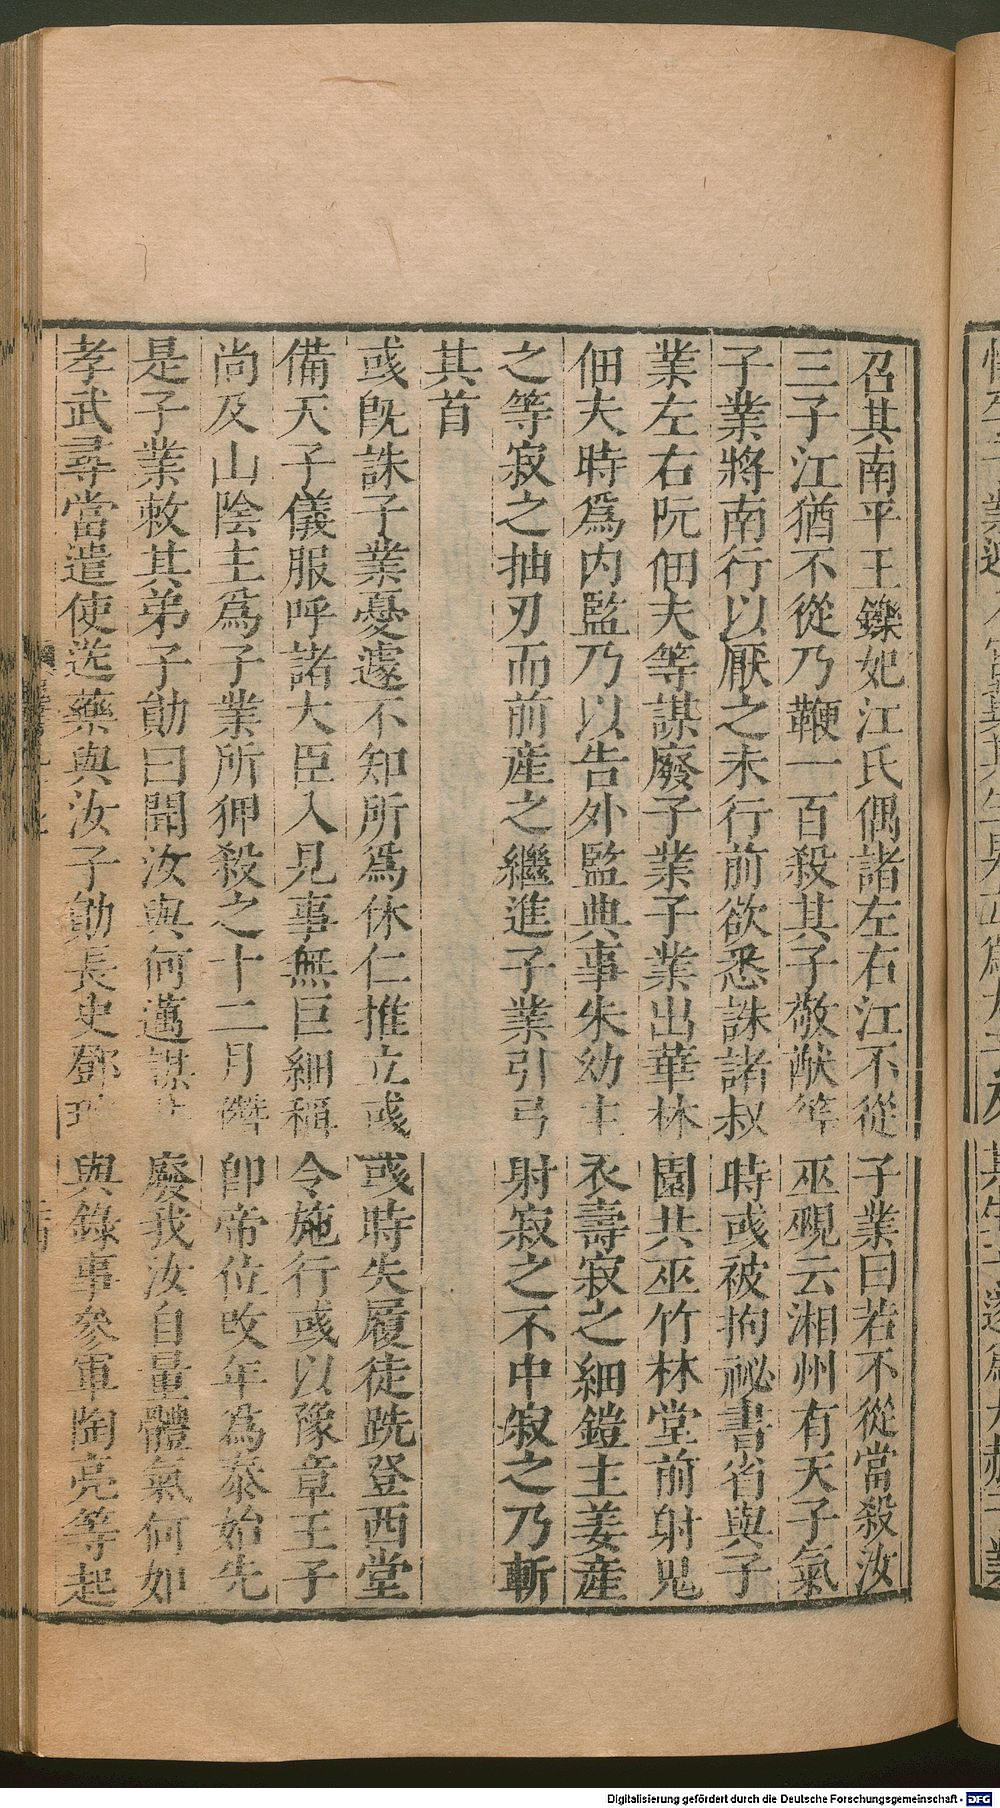 召其南平王鑠妃江氏偶諸左右江不從子業曰若不從當殺汝
三子江猶不從乃鞭一百殺其子敬猷等巫覡云湘州有天子氣
子業將南行以厭之未行前欲悉誅諸叔時彧被拘祕書省與子
業左右阮佃夫等謀廢子業子業出華林園共巫竹林堂前射鬼
佃夫時爲内監乃以告外監典事朱幼主衣壽寂之細鎧主姜産
之等寂之抽刃而前産之繼進子業引弓射寂之不中寂之乃斬
其首
彧既誅子業憂遽不知所爲休仁推立彧彧時失履徒跣登西堂
備天子儀服呼諸大臣入見事無巨細稱令施行彧以豫章王子
尚及山陰主爲子業所狎殺之十二月僭卽帝位改年爲泰始先
是子業敕其弟子勛曰聞汝與何邁謀廢我汝自量體氣何如
孝武尋當遣使送藥與汝子勛長史鄧與錄事參軍陶亮等起
Digitalisierung gefördert durch die Deutsche Forschungsgemeinschaft - DFG